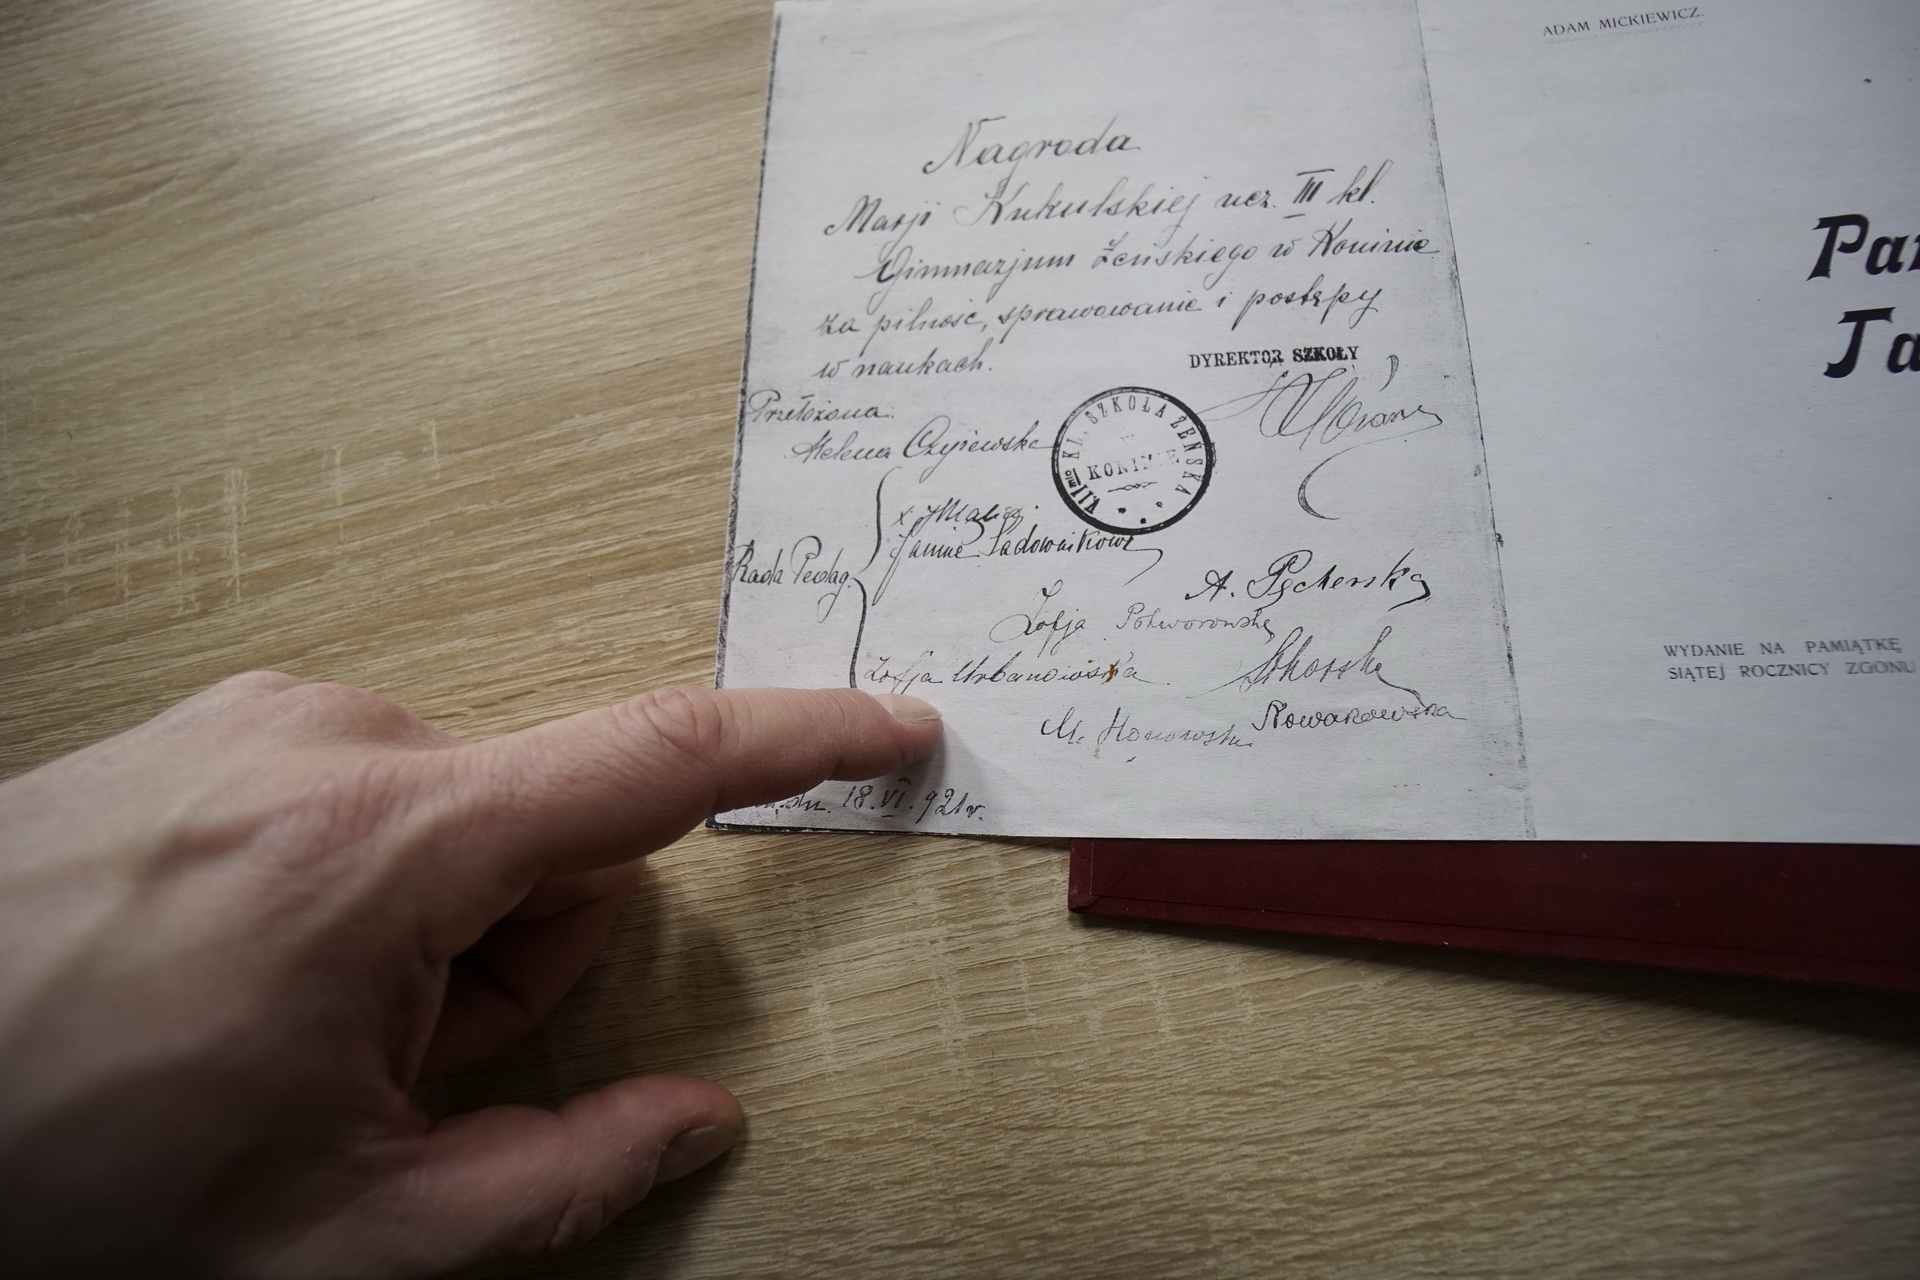 Nagroda
Marji Kukulskiej ucz. III kl.
Gimnazjum Żeńskiego w Koninie
za pilność, sprawowanie i postępy
w naukach.
DYREKTOR SZKOŁY
Przełożona:
Helena Czyżewska
VII mio KL. SZKOŁA ŻEŃSKA
w
KONINIE
Rada Pedag.
Janina Sadownikowa
A. Pęcherska
Zofja Potworowska
Zofja Urbanowska
Sikorska
Nowakowska
M. Honowska
dn. 18.VI.921r.
ADAM MICKIEWICZ.
Pan
Ta
WYDANIE NA PAMIĄTKĘ
SIĄTEJ ROCZNICY ZGONU